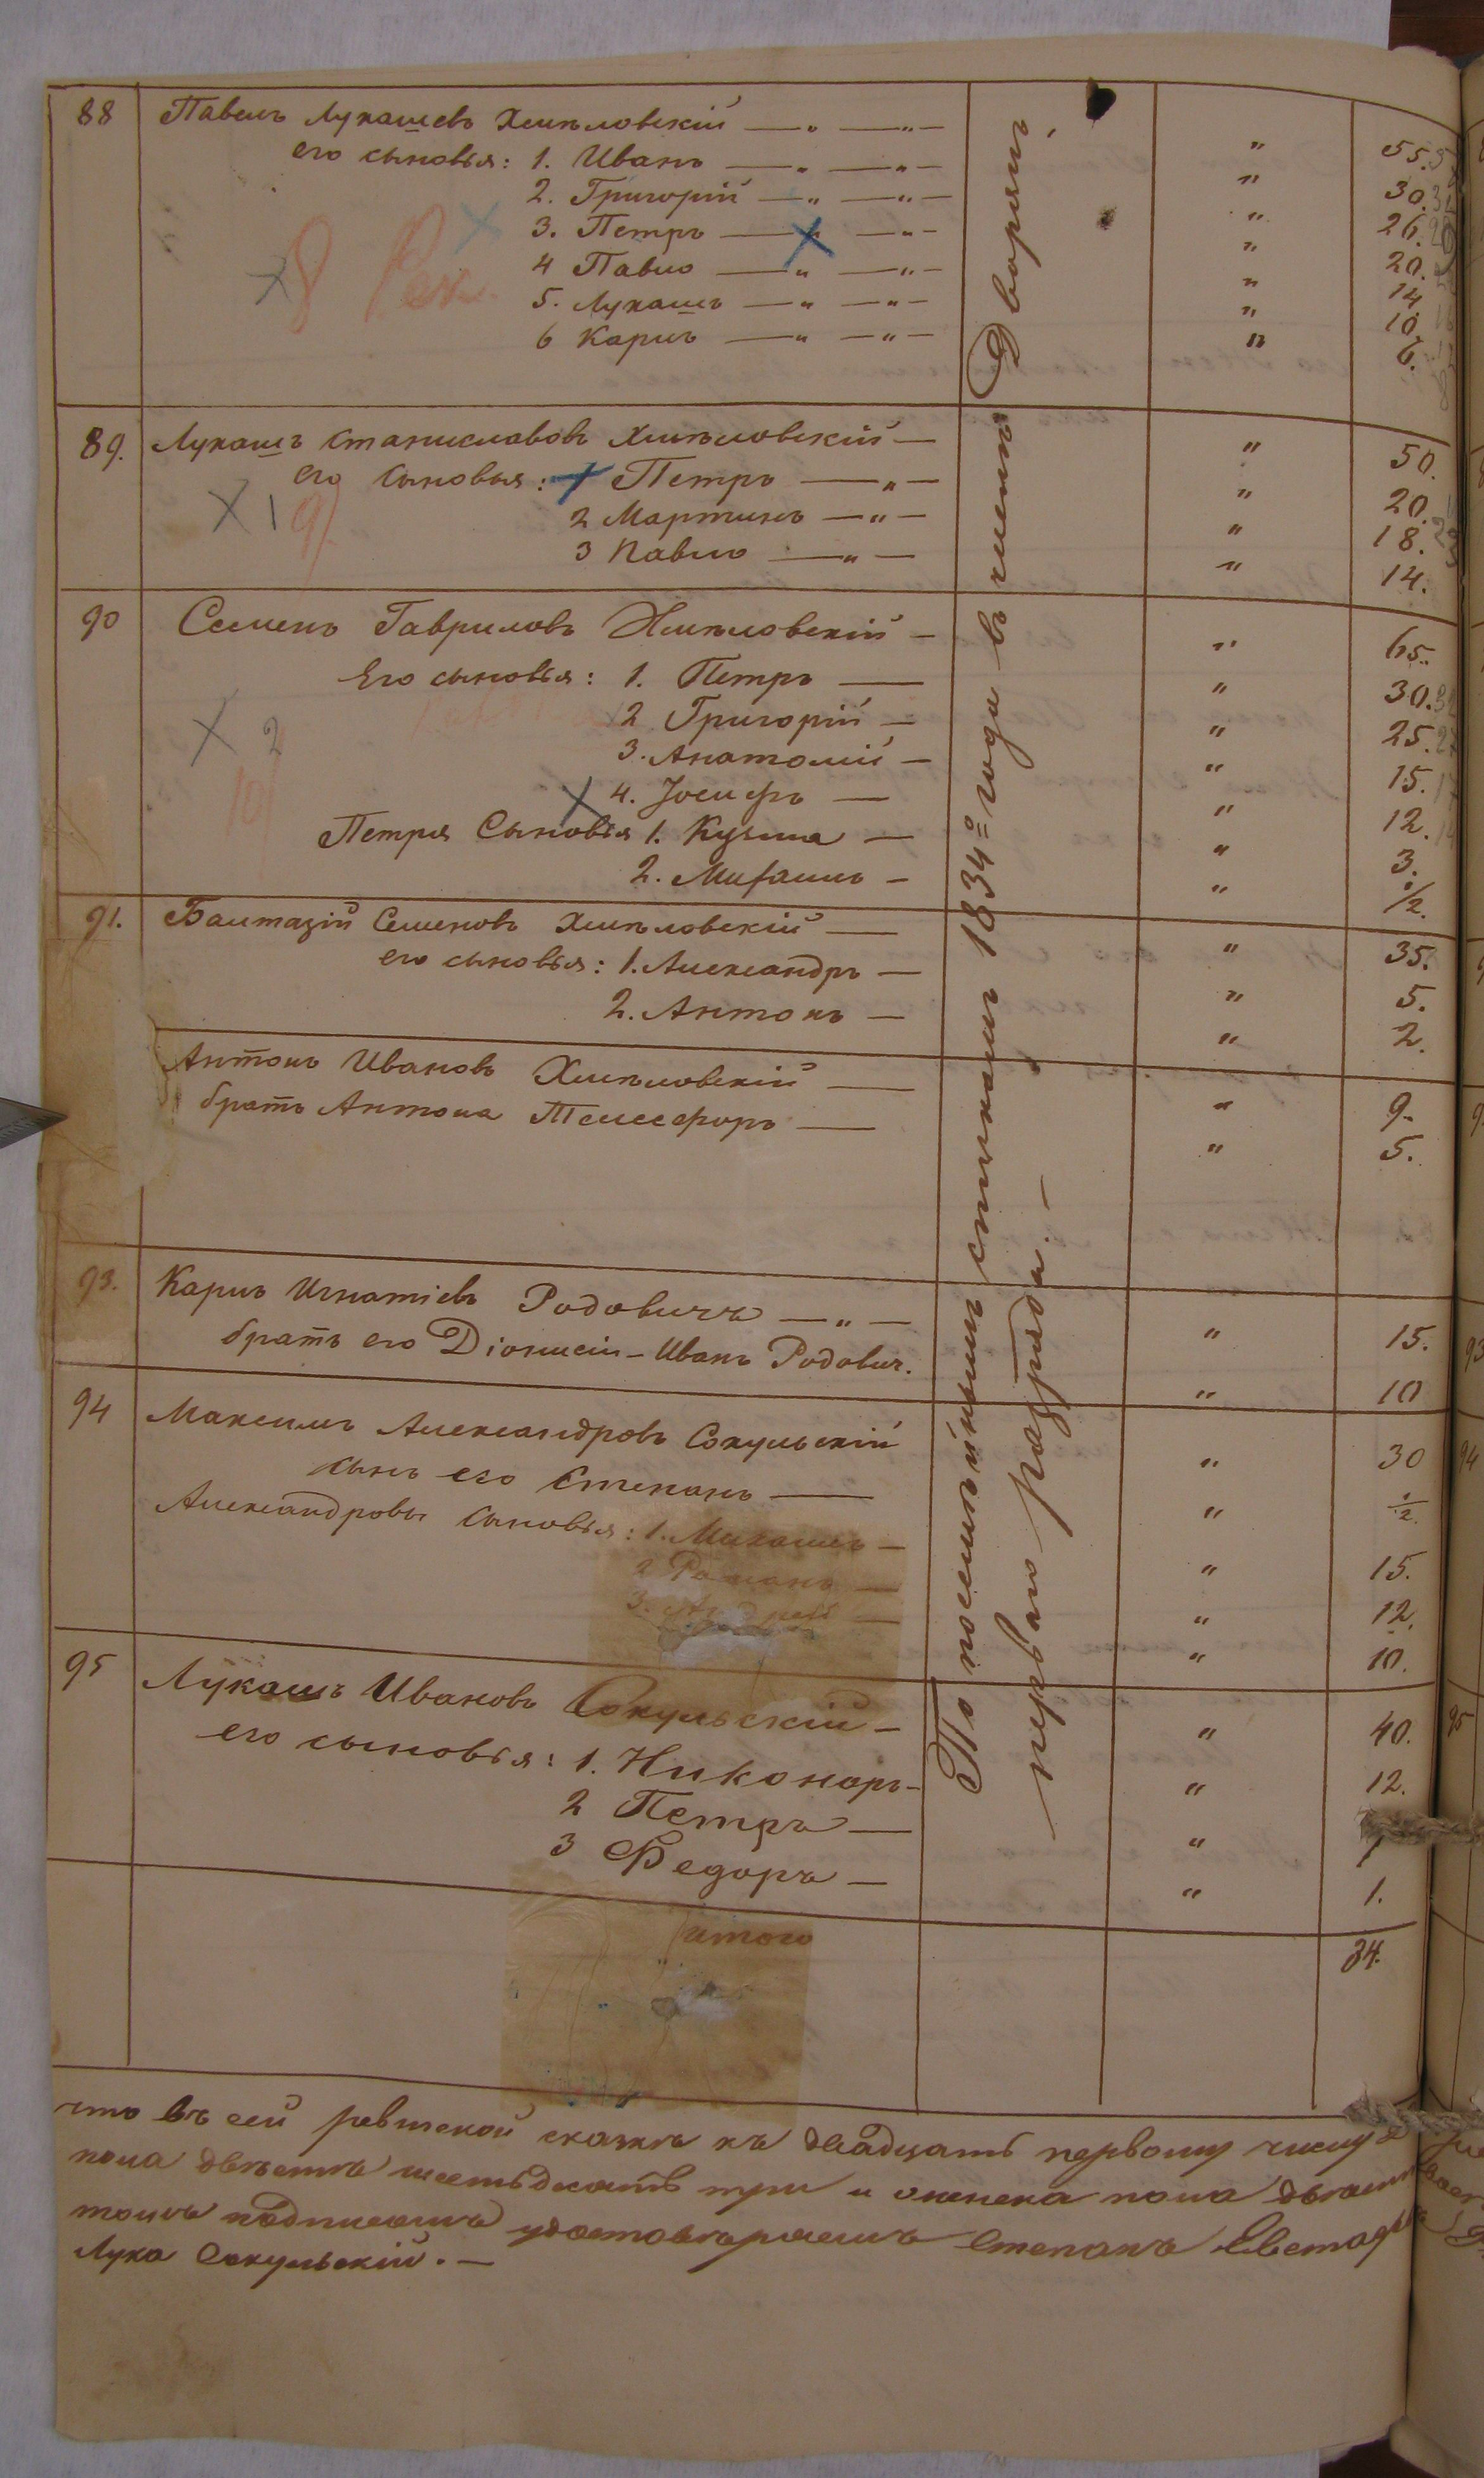 88 Павелъ Лукашевъ Хмѣловскій — „ — „ — „ 55.
его сыновья: 1. Иванъ — „ — „ — „ 30.
2. Григорій — „ — „ — „ 26.
3. Петръ — „ — „ — „ 20.
4 Павло — „ — „ — „ 14
5. Лукашъ — „ — „ — „ 10.
6 Карпъ — „ — „ — „ 6.
8
89. Лукашъ Станиславовъ Хмѣловскій — „ 50.
его сыновья: 1 Петръ — „ — „ 20.
2 Мартинъ — „ — „ 18.
3 Павло — „ — „ 14.
X 1 9
90 Семенъ Гавриловъ Хмѣловскій — „ 65.
Его сыновья: 1. Петръ — „ 30.
2 Григорій — „ 25.
3. Анатолій — „ 15.
4. Јосифъ — „ 12.
Петра Сыновья 1. Кузма — „ 3.
2. Михаилъ — „ 1/2.
X 2
10
91. Балтазій Семеновъ Хмѣловскій — „ 35.
его сыновья: 1. Александръ — „ 5.
2. Антонъ — „ 2.
Антонъ Ивановъ Хмѣловскій — „ 9.
братъ Антона Телесфоръ — „ 5.
93. Карпъ Игнатіевъ Родовичъ — „ — „ 15.
братъ его Діонисій - Иванъ Родович. „ 10
94 Максимъ Александровъ Сокульскій „ 30
сынъ его Степанъ — „ 1/2.
Александровы сыновья: 1. Михаилъ — „ 15.
2 Романъ — „ 12.
3. Андрей — „ 10.
95 Лукашъ Ивановъ Сокульскій — „ 40.
его сыновья: 1. Никоноръ — „ 12.
2 Петръ — „
3 Федоръ — „ 1.
По посемѣйнымъ спискамъ 1834го года въ числѣ Дворянъ,
перваго разряда. —
Итого 34.
что въ сей ревизской сказкѣ къ двадцать первому числу
пола двѣстѣ шестьдесятъ три и женска пола двѣсти
томъ подписомъ удостовѣряемъ Степанъ
Лука Сокульскій. —